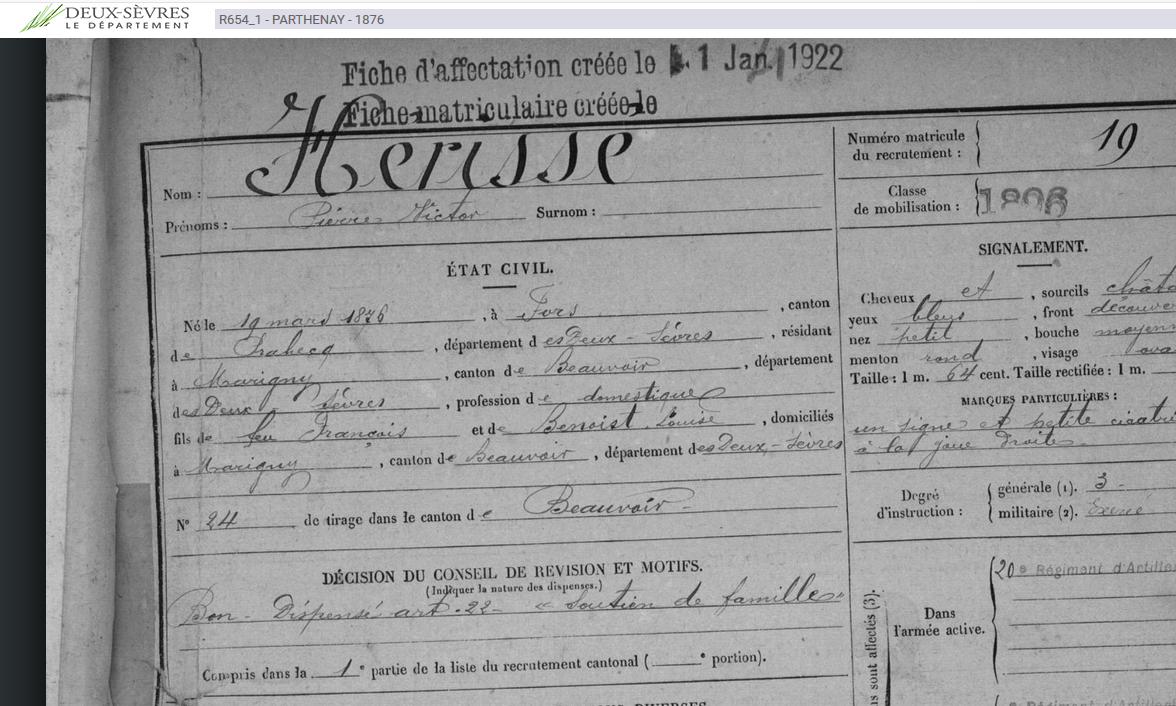 DEUX-SÈVRES
LE DÉPARTEMENT
R654_1 - PARTHENAY - 1876
Fiche d'affectation créée le 1 Jan. 1922
Fiche matriculaire créée le
Nom : Herisse
Prénoms : Pierre Victor Surnom :
ÉTAT CIVIL.
Né le 19 mars 1876, à Fors, canton
de Prahecq, département des Deux-Sèvres, résidant
à Marigny, canton de Beauvoir, département
des Deux Sèvres, profession de domestique
fils de feu Français et de Benoist Louise, domiciliés
à Marigny, canton de Beauvoir, département des Deux-Sèvres
N° 24 de tirage dans le canton de Beauvoir
DÉCISION DU CONSEIL DE REVISION ET MOTIFS.
(Indiquer la nature des dispenses.)
Bon - Dispensé art. 22 - « Soutien de famille »
Compris dans la 1e partie de la liste du recrutement cantonal ( e portion).
Numéro matricule
du recrutement : 19
Classe
de mobilisation : 1896
SIGNALEMENT.
Cheveux et, sourcils châta
yeux bleus, front découve
nez petit, bouche moyen
menton rond, visage ova
Taille : 1 m. 64 cent. Taille rectifiée : 1 m.
MARQUES PARTICULIÈRES :
un signe et petite cicatri
à la joue droite
Degré
d'instruction :
générale (1). 3
militaire (2). Exercé
Dans
l'armée active.
20e Régiment d'Artille
s sont affectés (3).
e Régiment d'Artil